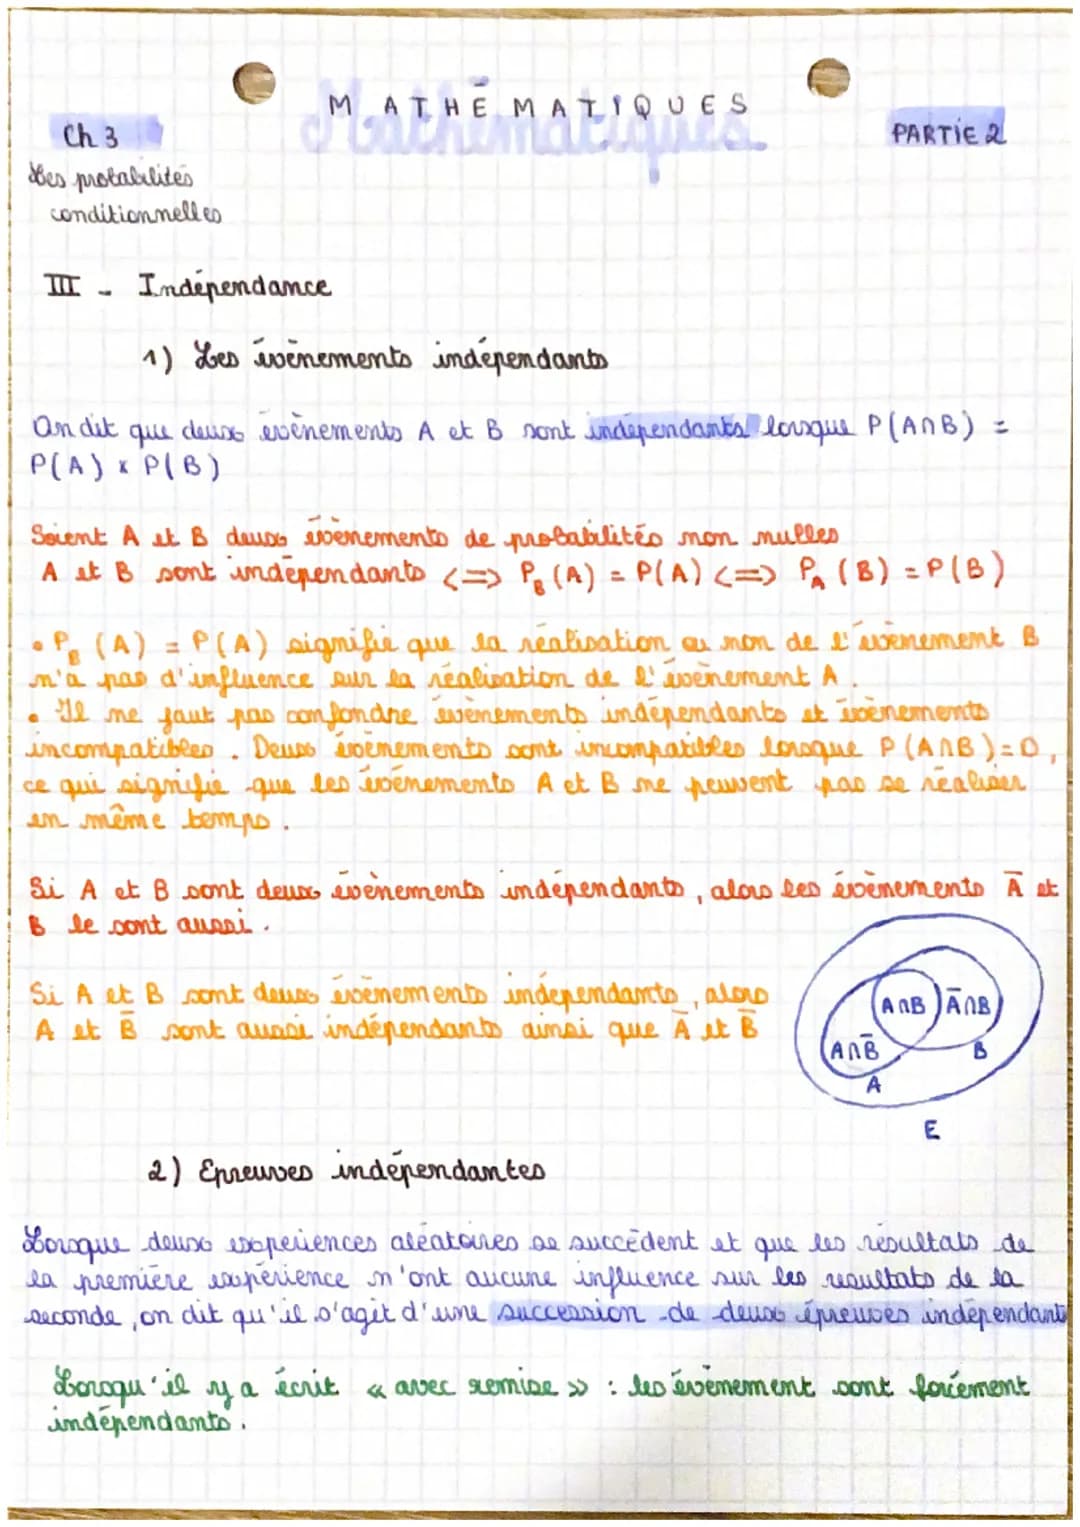 MATHÉMATIQUES
Mathématiques
Ch 3
PARTIE 2
Les probabilités
conditionnelles
III - Indépendance
1) Les évènements indépendants
On dit que deux évènements A et B sont indépendants lorsque P(A∩B) =
P(A) x P(B)
Soient A et B deux évènements de probabilités non nulles
A et B sont indépendants <=> P_B (A) = P(A) <=> P_A (B) = P(B)
• P_B (A) = P(A) signifie que la réalisation ou non de l'évènement B
n'a pas d'influence sur la réalisation de l'évènement A.
• Il ne faut pas confondre évènements indépendants et évènements
incompatibles. Deux évènements sont incompatibles lorsque P(A∩B)=0,
ce qui signifie que les évènements A et B ne peuvent pas se réaliser
en même temps.
Si A et B sont deux évènements indépendants, alors les évènements A̅ et
B le sont aussi.
Si A et B sont deux évènements indépendants, alors
A et B̅ sont aussi indépendants ainsi que A̅ et B̅
A∩B A̅∩B
A∩B̅ B
A
E
2) Epreuves indépendantes
Lorsque deux expériences aléatoires se succèdent et que les résultats de
la première expérience n'ont aucune influence sur les résultats de la
seconde, on dit qu'il s'agit d'une succession de deux épreuves indépendant
Lorsqu'il y a écrit « avec remise » : les évènement sont forcément
indépendants.